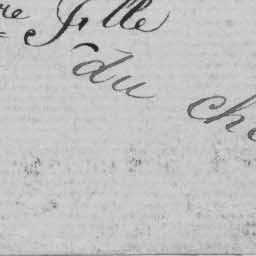 re Fille
du che